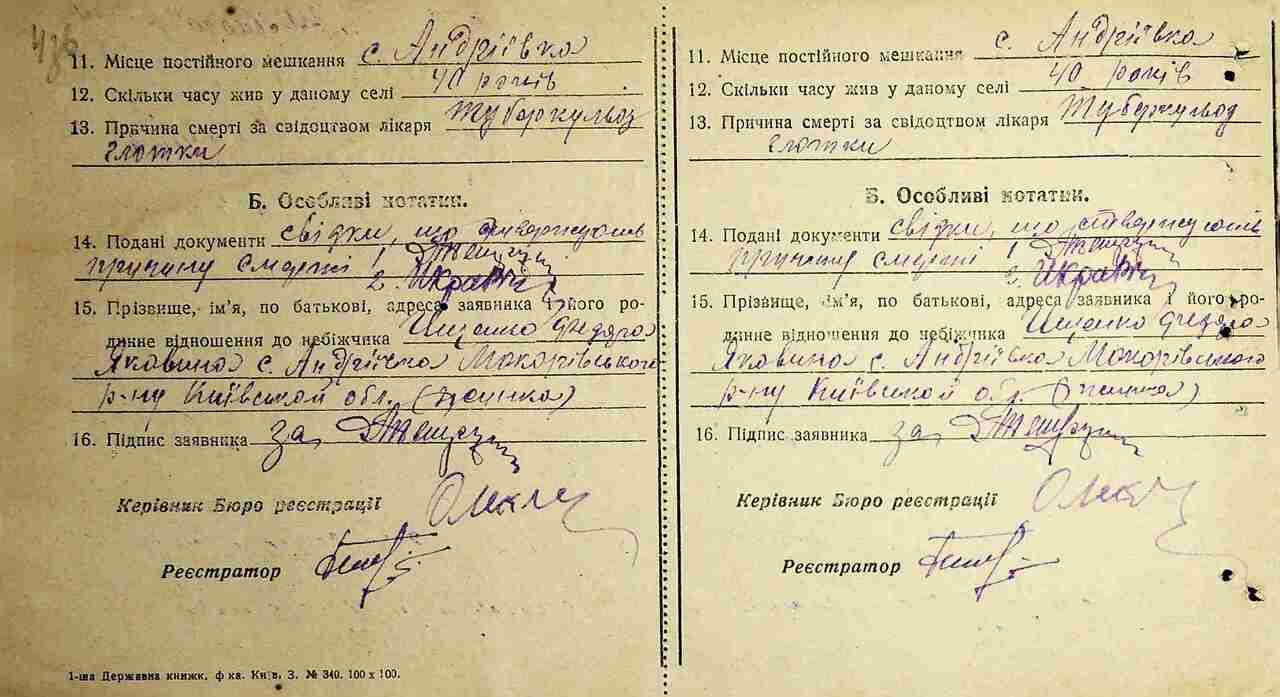 11. Місце постійного мешкання с. Андріївка
12. Скільки часу жив у даному селі 40 років
13. Причина смерті за свідоцтвом лікаря Туберкульоз
глотки
Б. Особливі нотатки.
14. Подані документи свідки, що стверджують
причину смерті 1
2.
15. Прізвище, ім'я, по батькові, адреса заявника і його ро-
динне відношення до небіжчика Іщенко
Яковина с. Андріївка Макарівського
р-ну Київської обл.
16. Підпис заявника за
Керівник Бюро реєстрації
Реєстратор
1-ша Державна книжк. ф-ка. Київ, З. № 340. 100 x 100.
11. Місце постійного мешкання с. Андріївка
12. Скільки часу жив у даному селі 40 років
13. Причина смерті за свідоцтвом лікаря Туберкульоз
глотки
Б. Особливі нотатки.
14. Подані документи свідки, що стверджують
причину смерті 1
2.
15. Прізвище, ім'я, по батькові, адреса заявника і його ро-
динне відношення до небіжчика Іщенко
Яковина с. Андріївка Макарівського
р-ну Київської обл.
16. Підпис заявника за
Керівник Бюро реєстрації
Реєстратор